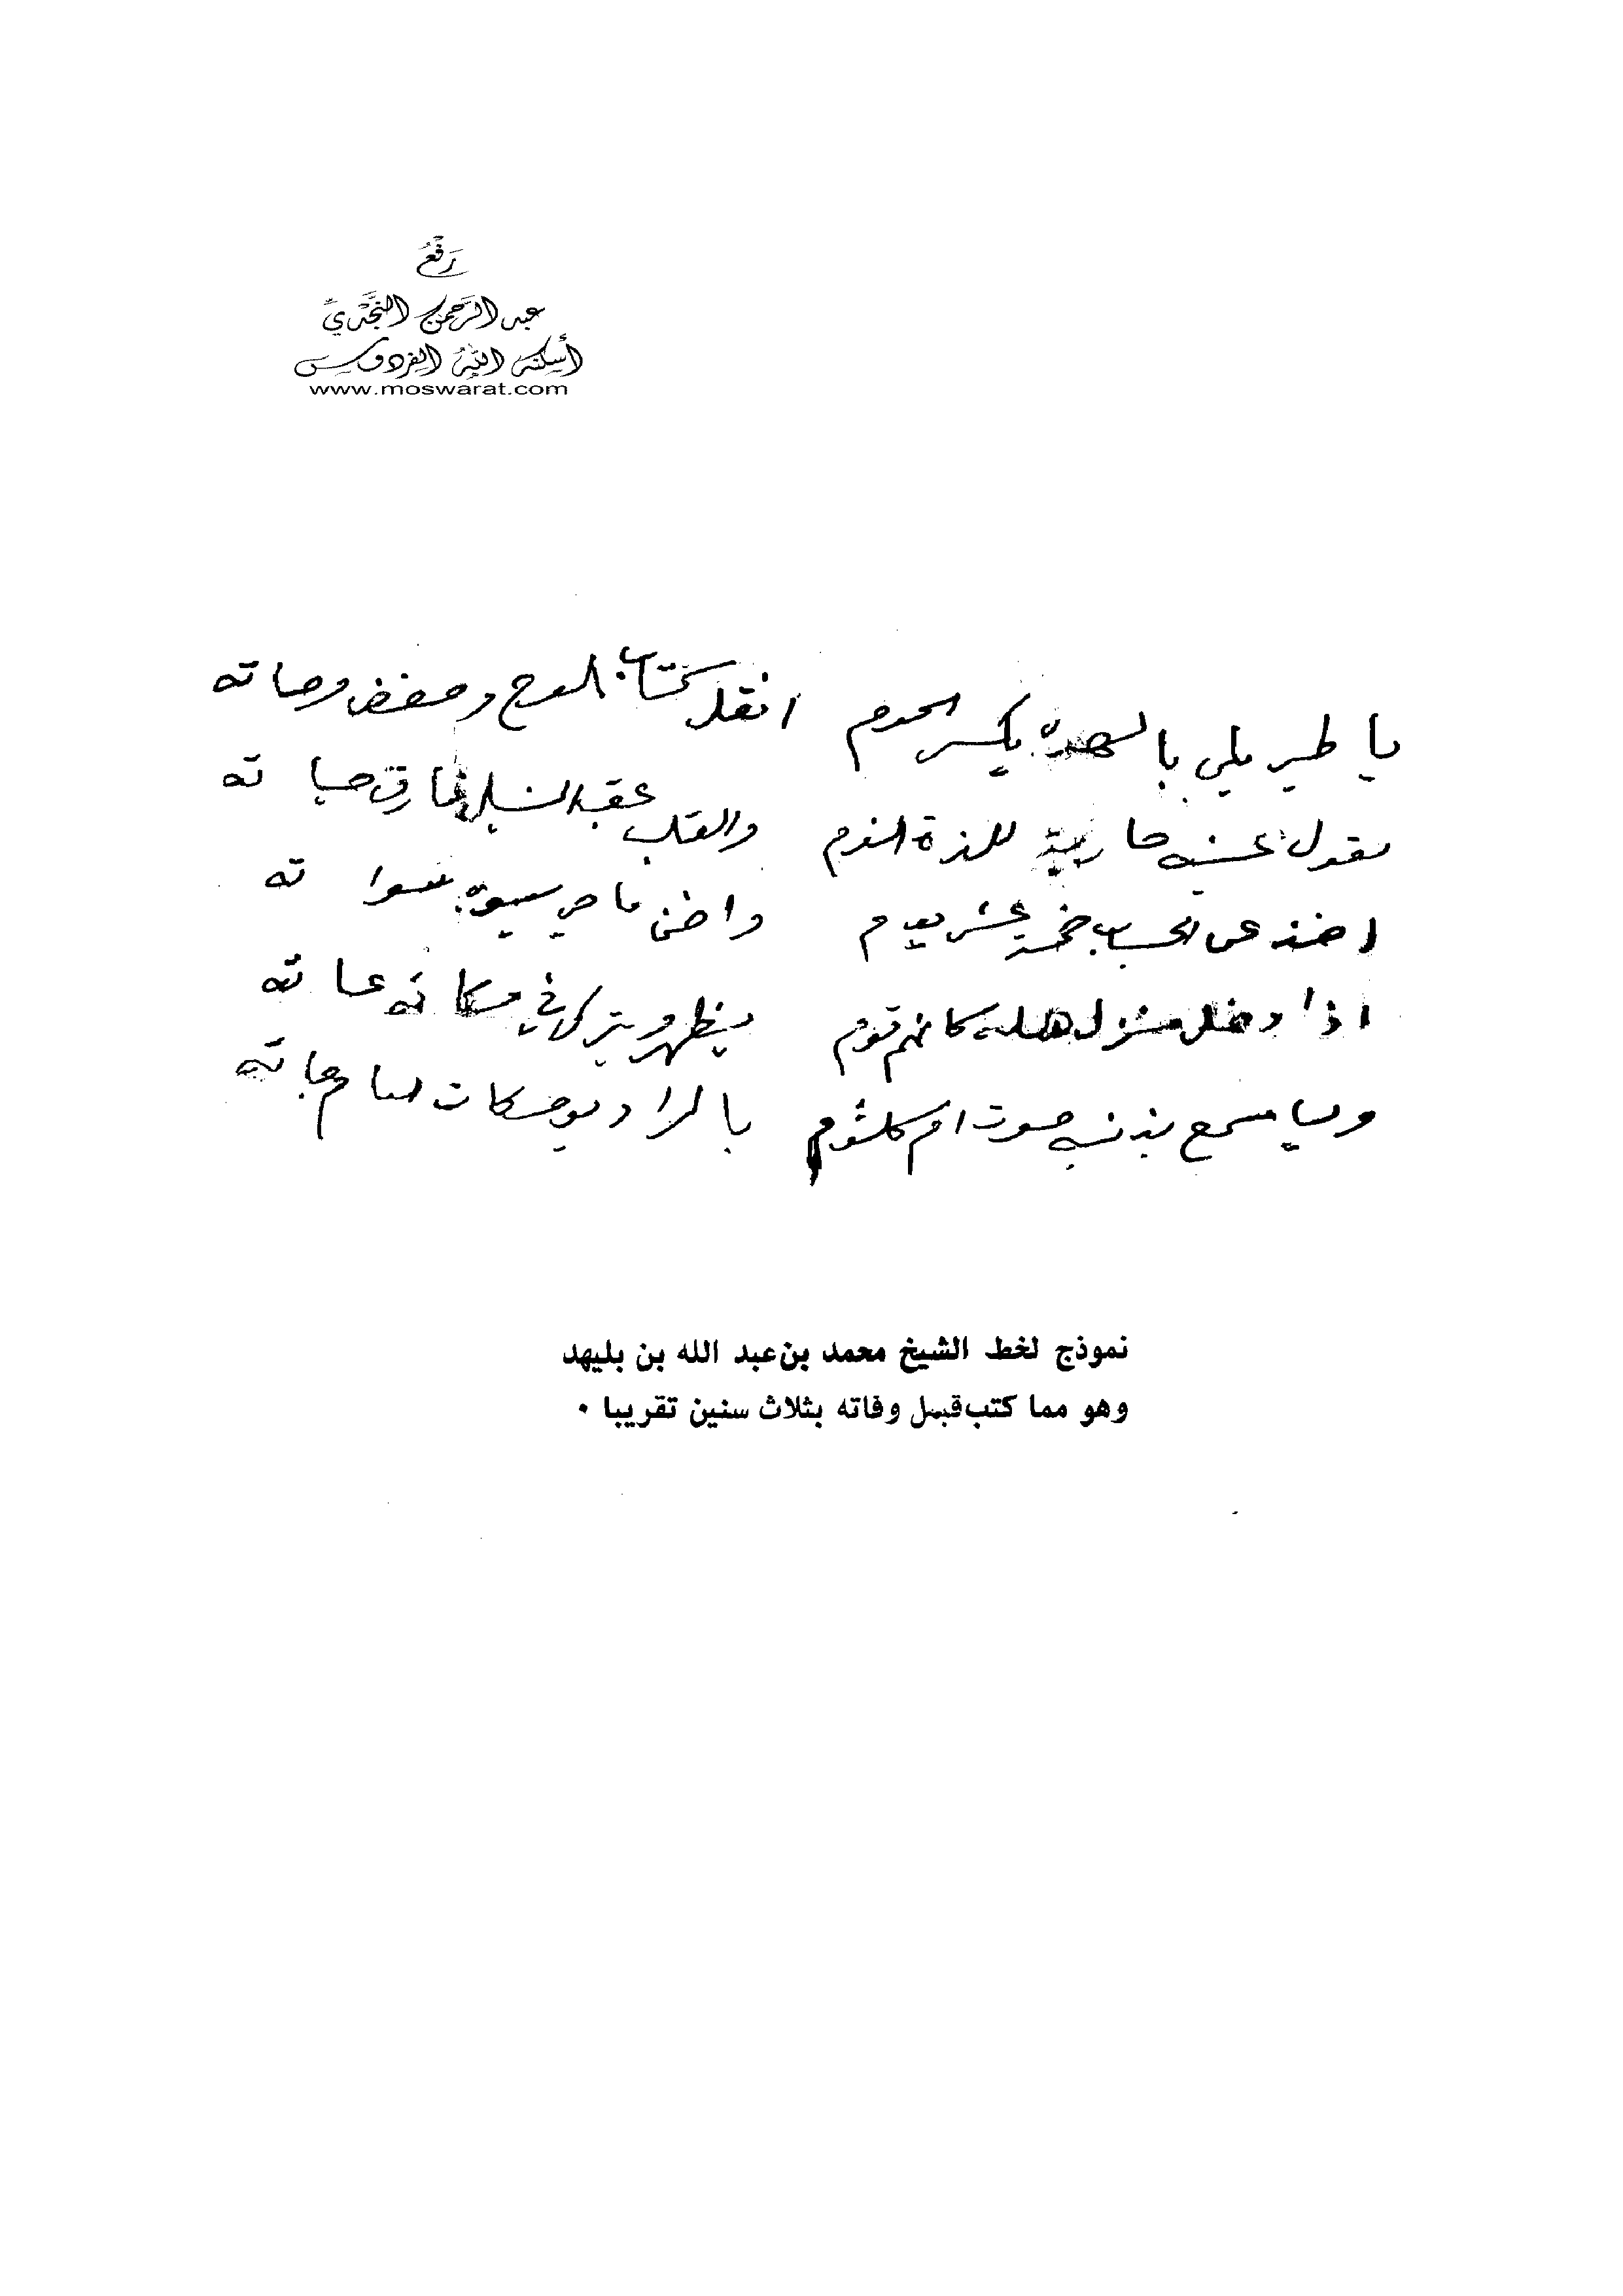 رَفْعُ
عبد الرحمن النجدي
أسكنه الله الفردوس
www.moswarat.com
يا طير يلي بالهده يكسر الحوم انقل كتاب الموح وحفض وصاته
يقول عينيه حاربة للذة النوم والقلب عقب الشيل فارق حياته
اخذ عن الحساب خمسة عشر يوم واضن ماحي يسوي سواته
اذا دخل منزل هله كانهم قوم يظهر ويترك في مكانه عباته
وليا سمع بذنيه صوت ام كلثوم بالراديو حكات
نموذج لخط الشيخ محمد بن عبد الله بن بليهد
وهو مما كتب قبل وفاته بثلاث سنين تقريبا ٠